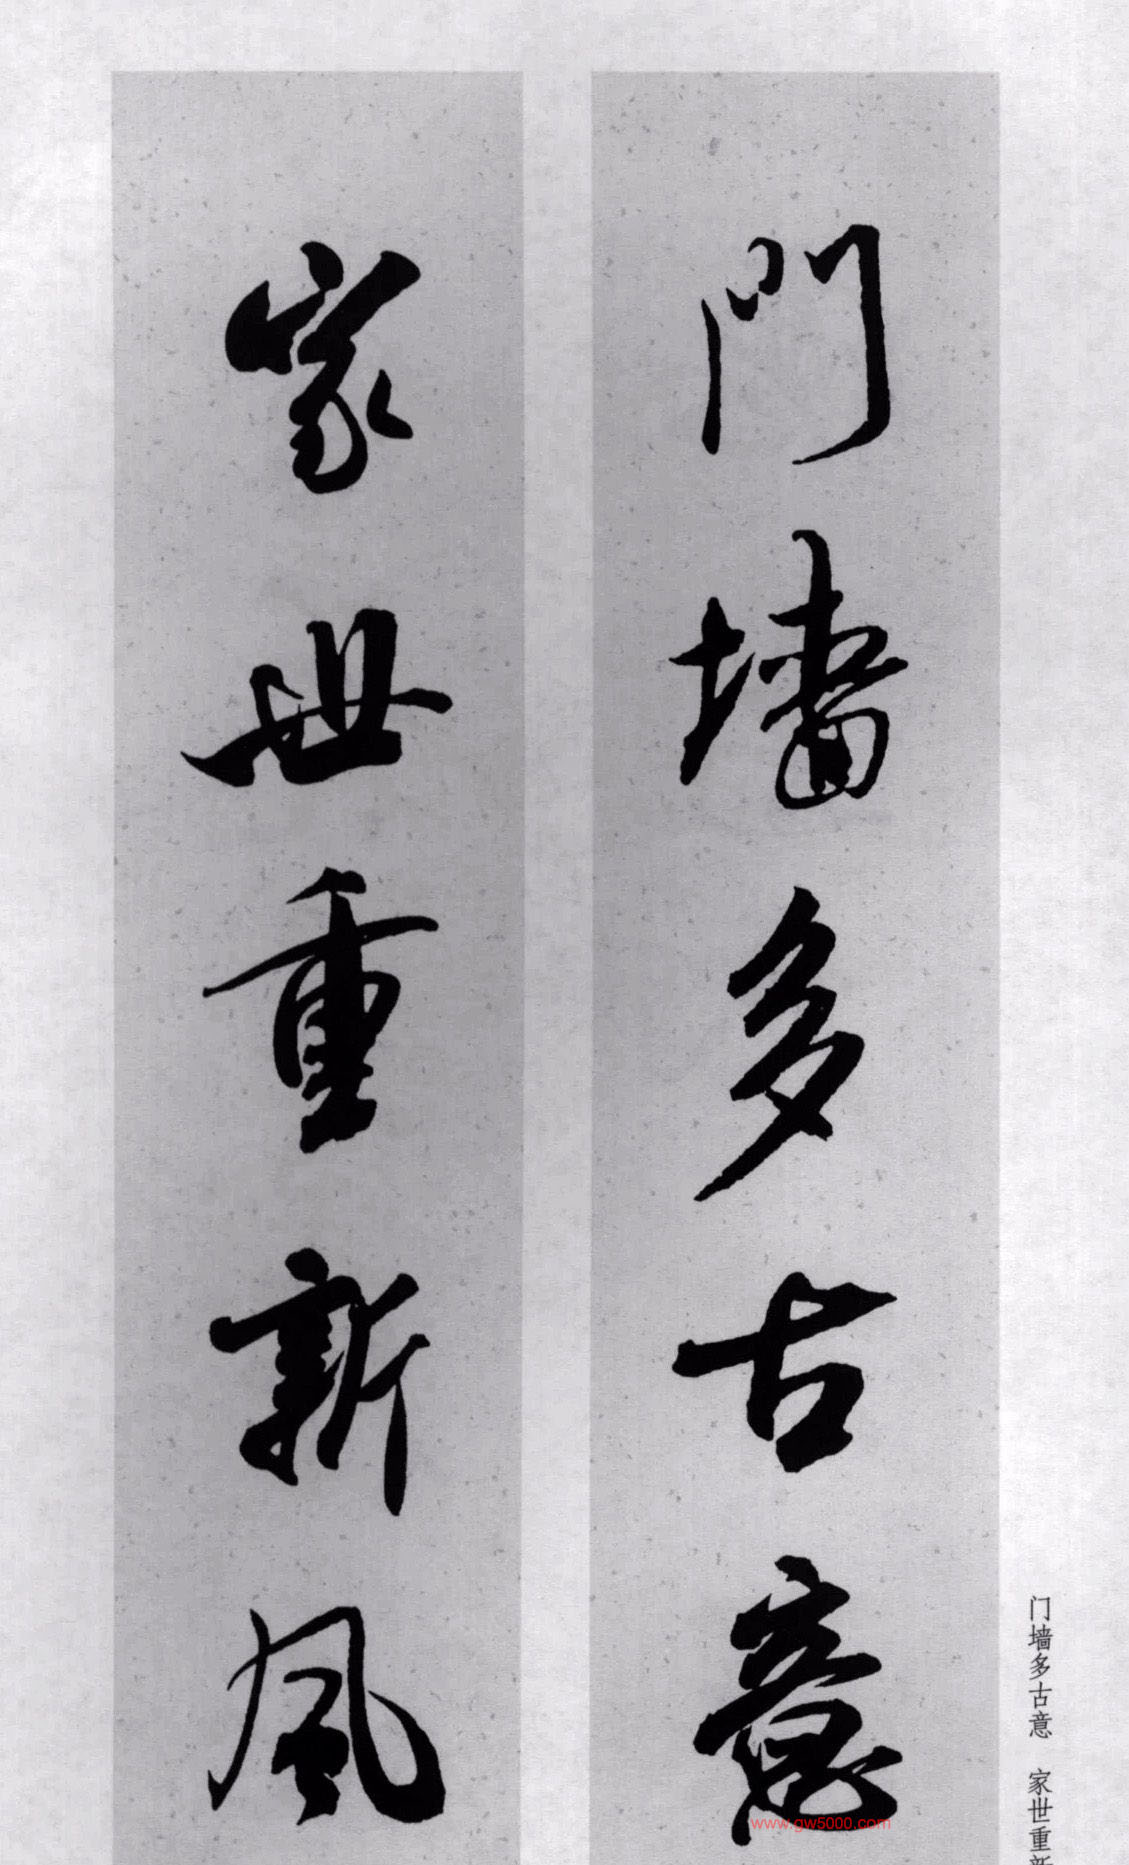 門墻多古意
家世重新風
门墙多古意 家世重新
www.gw5000.com